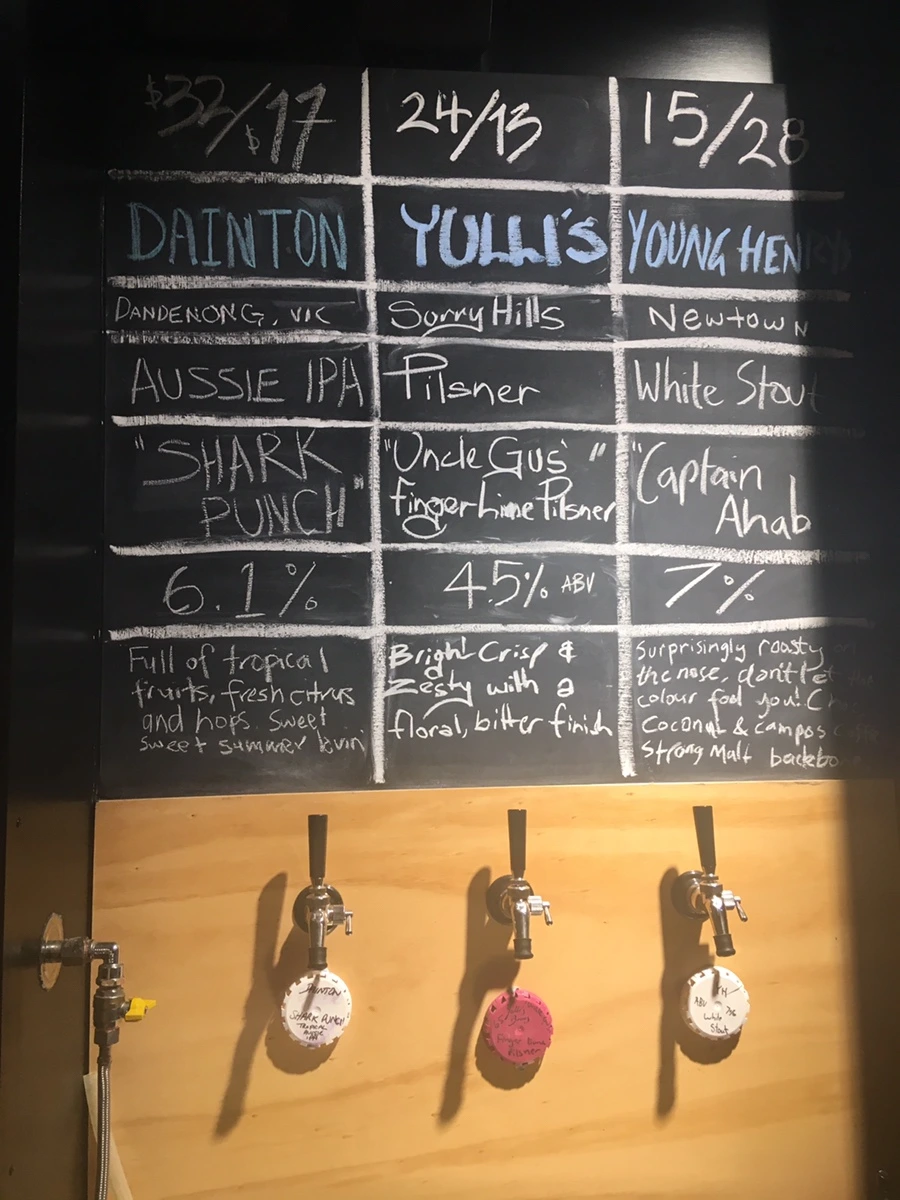 $32/$17
DAINTON
DANDENONG, VIC
AUSSIE IPA
"SHARK
PUNCH"
6.1%
Full of tropical
fruits, fresh citrus
and hops. Sweet
sweet summer lovin'
24/13
YULLI'S
Surry Hills
Pilsner
"Uncle Gus' "
fingerLime Pilsner
4.5% ABV
Bright Crisp &
Zesty with a
floral, bitter finish
15/28
YOUNG HENRYS
Newtown
White Stout
"Captain
Ahab
7%
Surprisingly roasty on
the nose, don't let the
colour fool you!
Coconut & campos
Strong Malt
DAINTON
SHARK PUNCH
TROPICAL
AUSSIE
IPA
Finger Lime
Pilsner
YH
ABV 7%
White
Stout